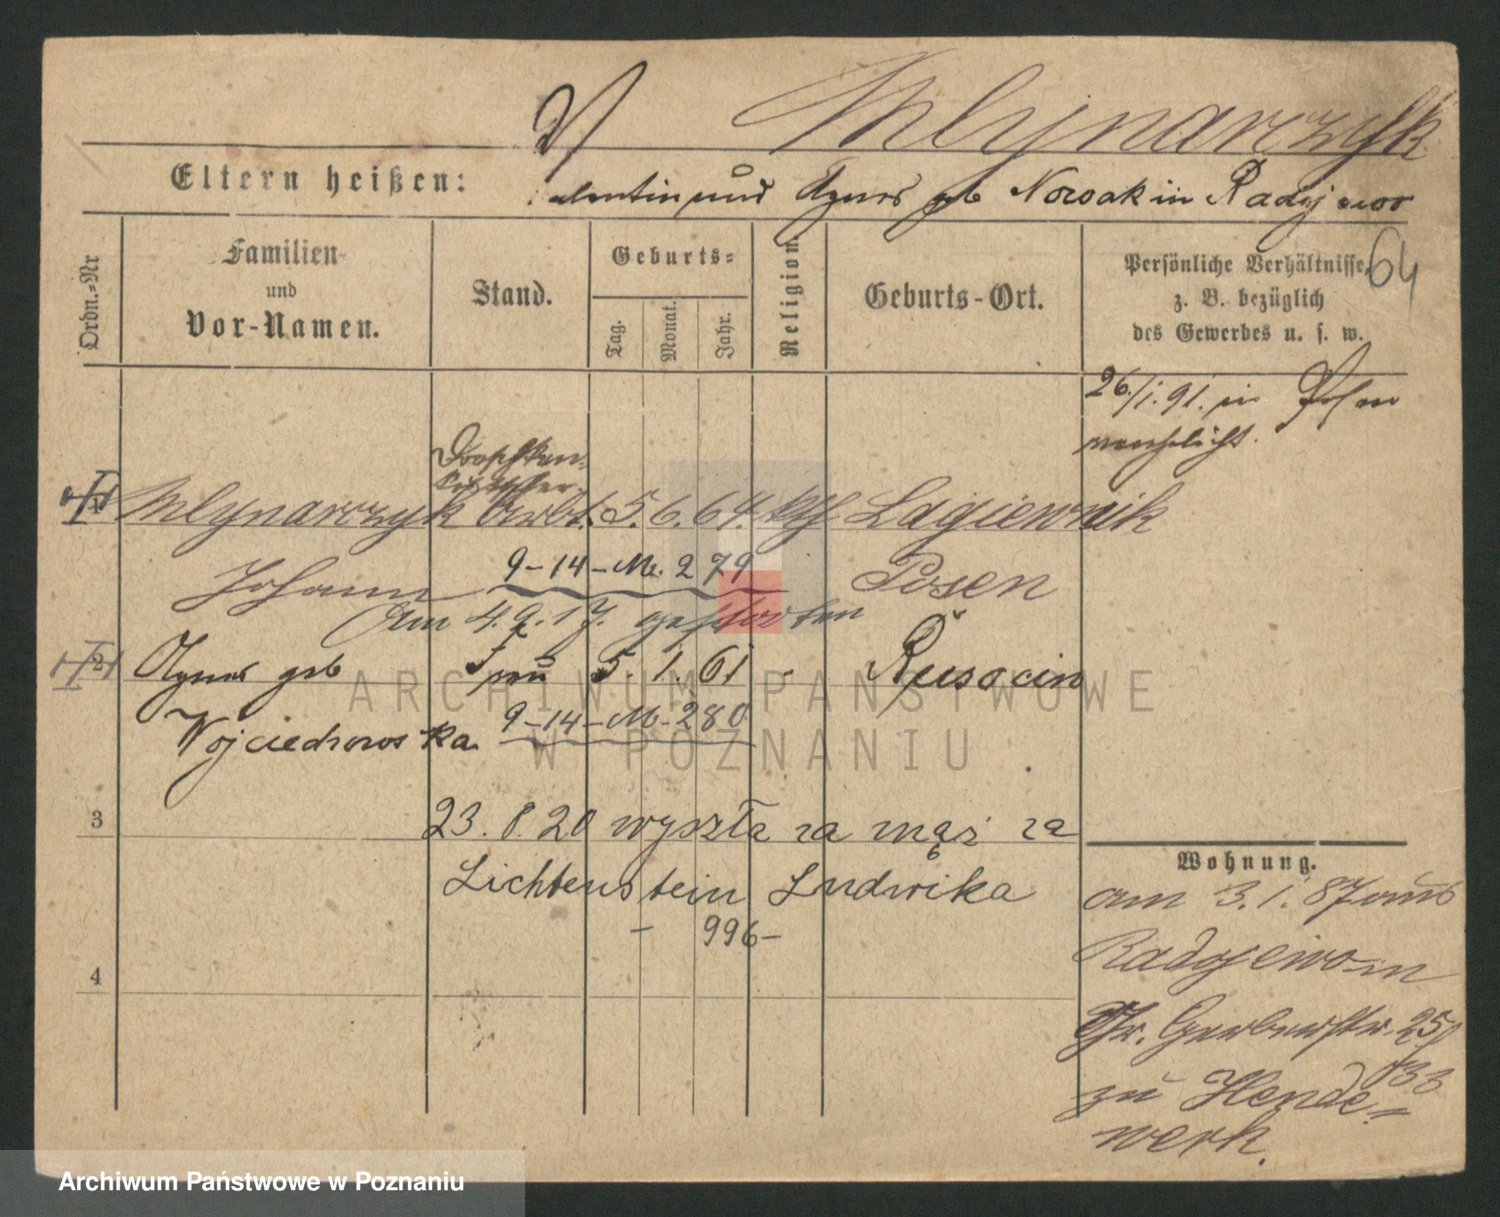 Mlynarczyk
Eltern heißen:
Valentin und Agnes gb Nowak in Radojewo
64
Ordn.=Nr
Familien-
und
Vor-Namen.
Stand.
Geburts=
Tag.
Monat.
Jahr.
Religion.
Geburts-Ort.
Persönliche Verhältnisse,
z. B. bezüglich
des Gewerbes u. s. w.
26./1.91. in Posen
verehelicht.
Droschken-
Mlynarczyk Arbt. 5.6.64. kth Lagiewnik
Johann 9-14-M. 279 Posen
Am 4.9.17. gestorben
2 Agnes geb Frau 5. 1. 61 " Rusocin
Wojciechowska 9-14-M. 280
ARCHIWUM PAŃSTWOWE
W POZNANIU
3 23.8.20 wyszła za mąż za
Lichtenstein Ludwika
- 996-
4
Wohnung.
am 3.1.87 aus
Radojewo in
Gr. Gerberstr. 25/
33
zu Hende=
werk.
Archiwum Państwowe w Poznaniu